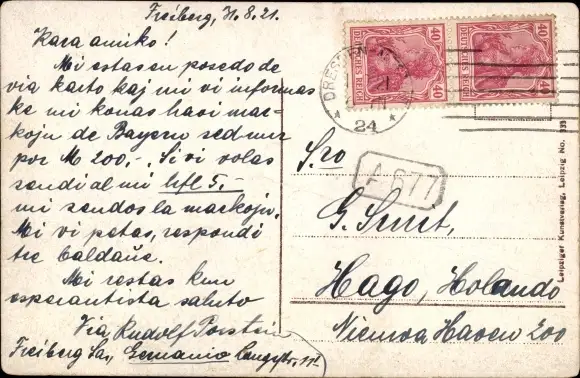 Freiberg, 31.8.21.
Kara amiko!
Mi estas en posedo de
via karto kaj mi vi informas
ke mi konas havi mar-
kojn de Bayern sed nur
por M 200,-. Si vi volas
sendi al mi hfl 5,-
mi sendos la markojn.
Mi vi petas, respondi
tre baldaŭe.
Mi restas kun
esperantista saluto
Via Rudolf Porstein
Freiberg Sa., Germanio Langestr. 11
DEUTSCHES REICH
40 40
DEUTSCHES REICH
40 40
DRESDEN
24
A 677
S-ro
G. Smit,
Hago, Holando
Nieuwe Haven 200
Leipziger Kunstverlag, Leipzig No. 133